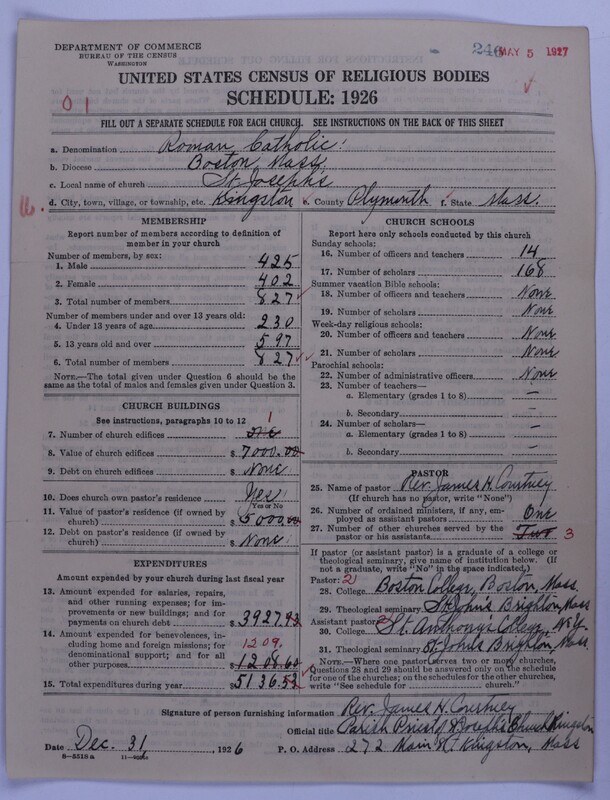 DEPARTMENT OF COMMERCE
BUREAU OF THE CENSUS
WASHINGTON
246 MAY 5 1927
UNITED STATES CENSUS OF RELIGIOUS BODIES
SCHEDULE: 1926
01
FILL OUT A SEPARATE SCHEDULE FOR EACH CHURCH. SEE INSTRUCTIONS ON THE BACK OF THIS SHEET
a. Denomination Roman Catholic.
b. Diocese Boston, Mass.
c. Local name of church St. Joseph's
16. d. City, town, village, or township, etc. Kingston e. County Plymouth f. State Mass.
MEMBERSHIP
Report number of members according to definition of member in your church
Number of members, by sex:
1. Male 425
2. Female 402
3. Total number of members 827
Number of members under and over 13 years old:
4. Under 13 years of age 230
5. 13 years old and over 597
6. Total number of members 827
NOTE.—The total given under Question 6 should be the same as the total of males and females given under Question 3.
CHURCH BUILDINGS
See instructions, paragraphs 10 to 12
7. Number of church edifices One 1
8. Value of church edifices $ 7000.00
9. Debt on church edifices $ None
10. Does church own pastor's residence Yes
Yes or No
11. Value of pastor's residence (if owned by church) $ 5000.00
12. Debt on pastor's residence (if owned by church) $ None
EXPENDITURES
Amount expended by your church during last fiscal year
13. Amount expended for salaries, repairs, and other running expenses; for improvements or new buildings; and for payments on church debt $ 3927.93
14. Amount expended for benevolences, including home and foreign missions; for denominational support; and for all other purposes 1209. $ 1208.60
15. Total expenditures during year $ 5136.53
CHURCH SCHOOLS
Report here only schools conducted by this church
Sunday schools:
16. Number of officers and teachers 14
17. Number of scholars 168
Summer vacation Bible schools:
18. Number of officers and teachers None
19. Number of scholars None
Week-day religious schools:
20. Number of officers and teachers None
21. Number of scholars None
Parochial schools:
22. Number of administrative officers None
23. Number of teachers—
a. Elementary (grades 1 to 8) —
b. Secondary —
24. Number of scholars—
a. Elementary (grades 1 to 8) —
b. Secondary —
PASTOR
25. Name of pastor Rev. James H. Courtney
(If church has no pastor, write "None")
26. Number of ordained ministers, if any, employed as assistant pastors One
27. Number of other churches served by the pastor or his assistants Two 3
If pastor (or assistant pastor) is a graduate of a college or theological seminary, give name of institution below. (If not a graduate, write "No" in the space indicated.)
Pastor: 2
28. College Boston College, Boston, Mass.
29. Theological seminary St. John's Brighton, Mass
Assistant pastor: 2
30. College St. Anthony's College, N.Y.
31. Theological seminary St. Johns Brighton, Mass.
NOTE.—Where one pastor serves two or more churches, Questions 28 and 29 should be answered only on the schedule for one of the churches; on the schedules for the other churches, write "See schedule for ............ church."
Signature of person furnishing information Rev. James H. Courtney
Official title Parish Priest St Joseph's Church Kingston
Date Dec. 31, 1926 P. O. Address 272 Main St Kingston, Mass
8—5518 a